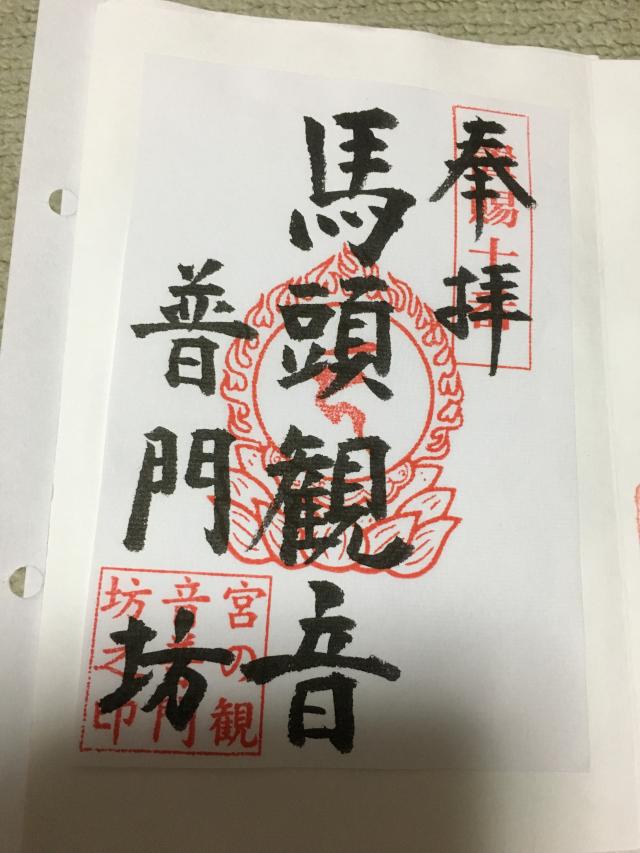 奉拝
馬頭観音
普門坊
宮の観
音普門
坊之印